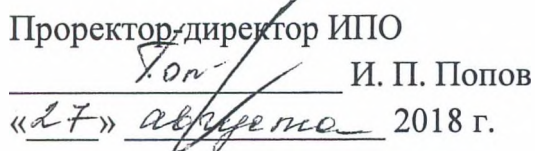 Проректор-директор ИПО
И. П. Попов
«27» августа 2018 г.